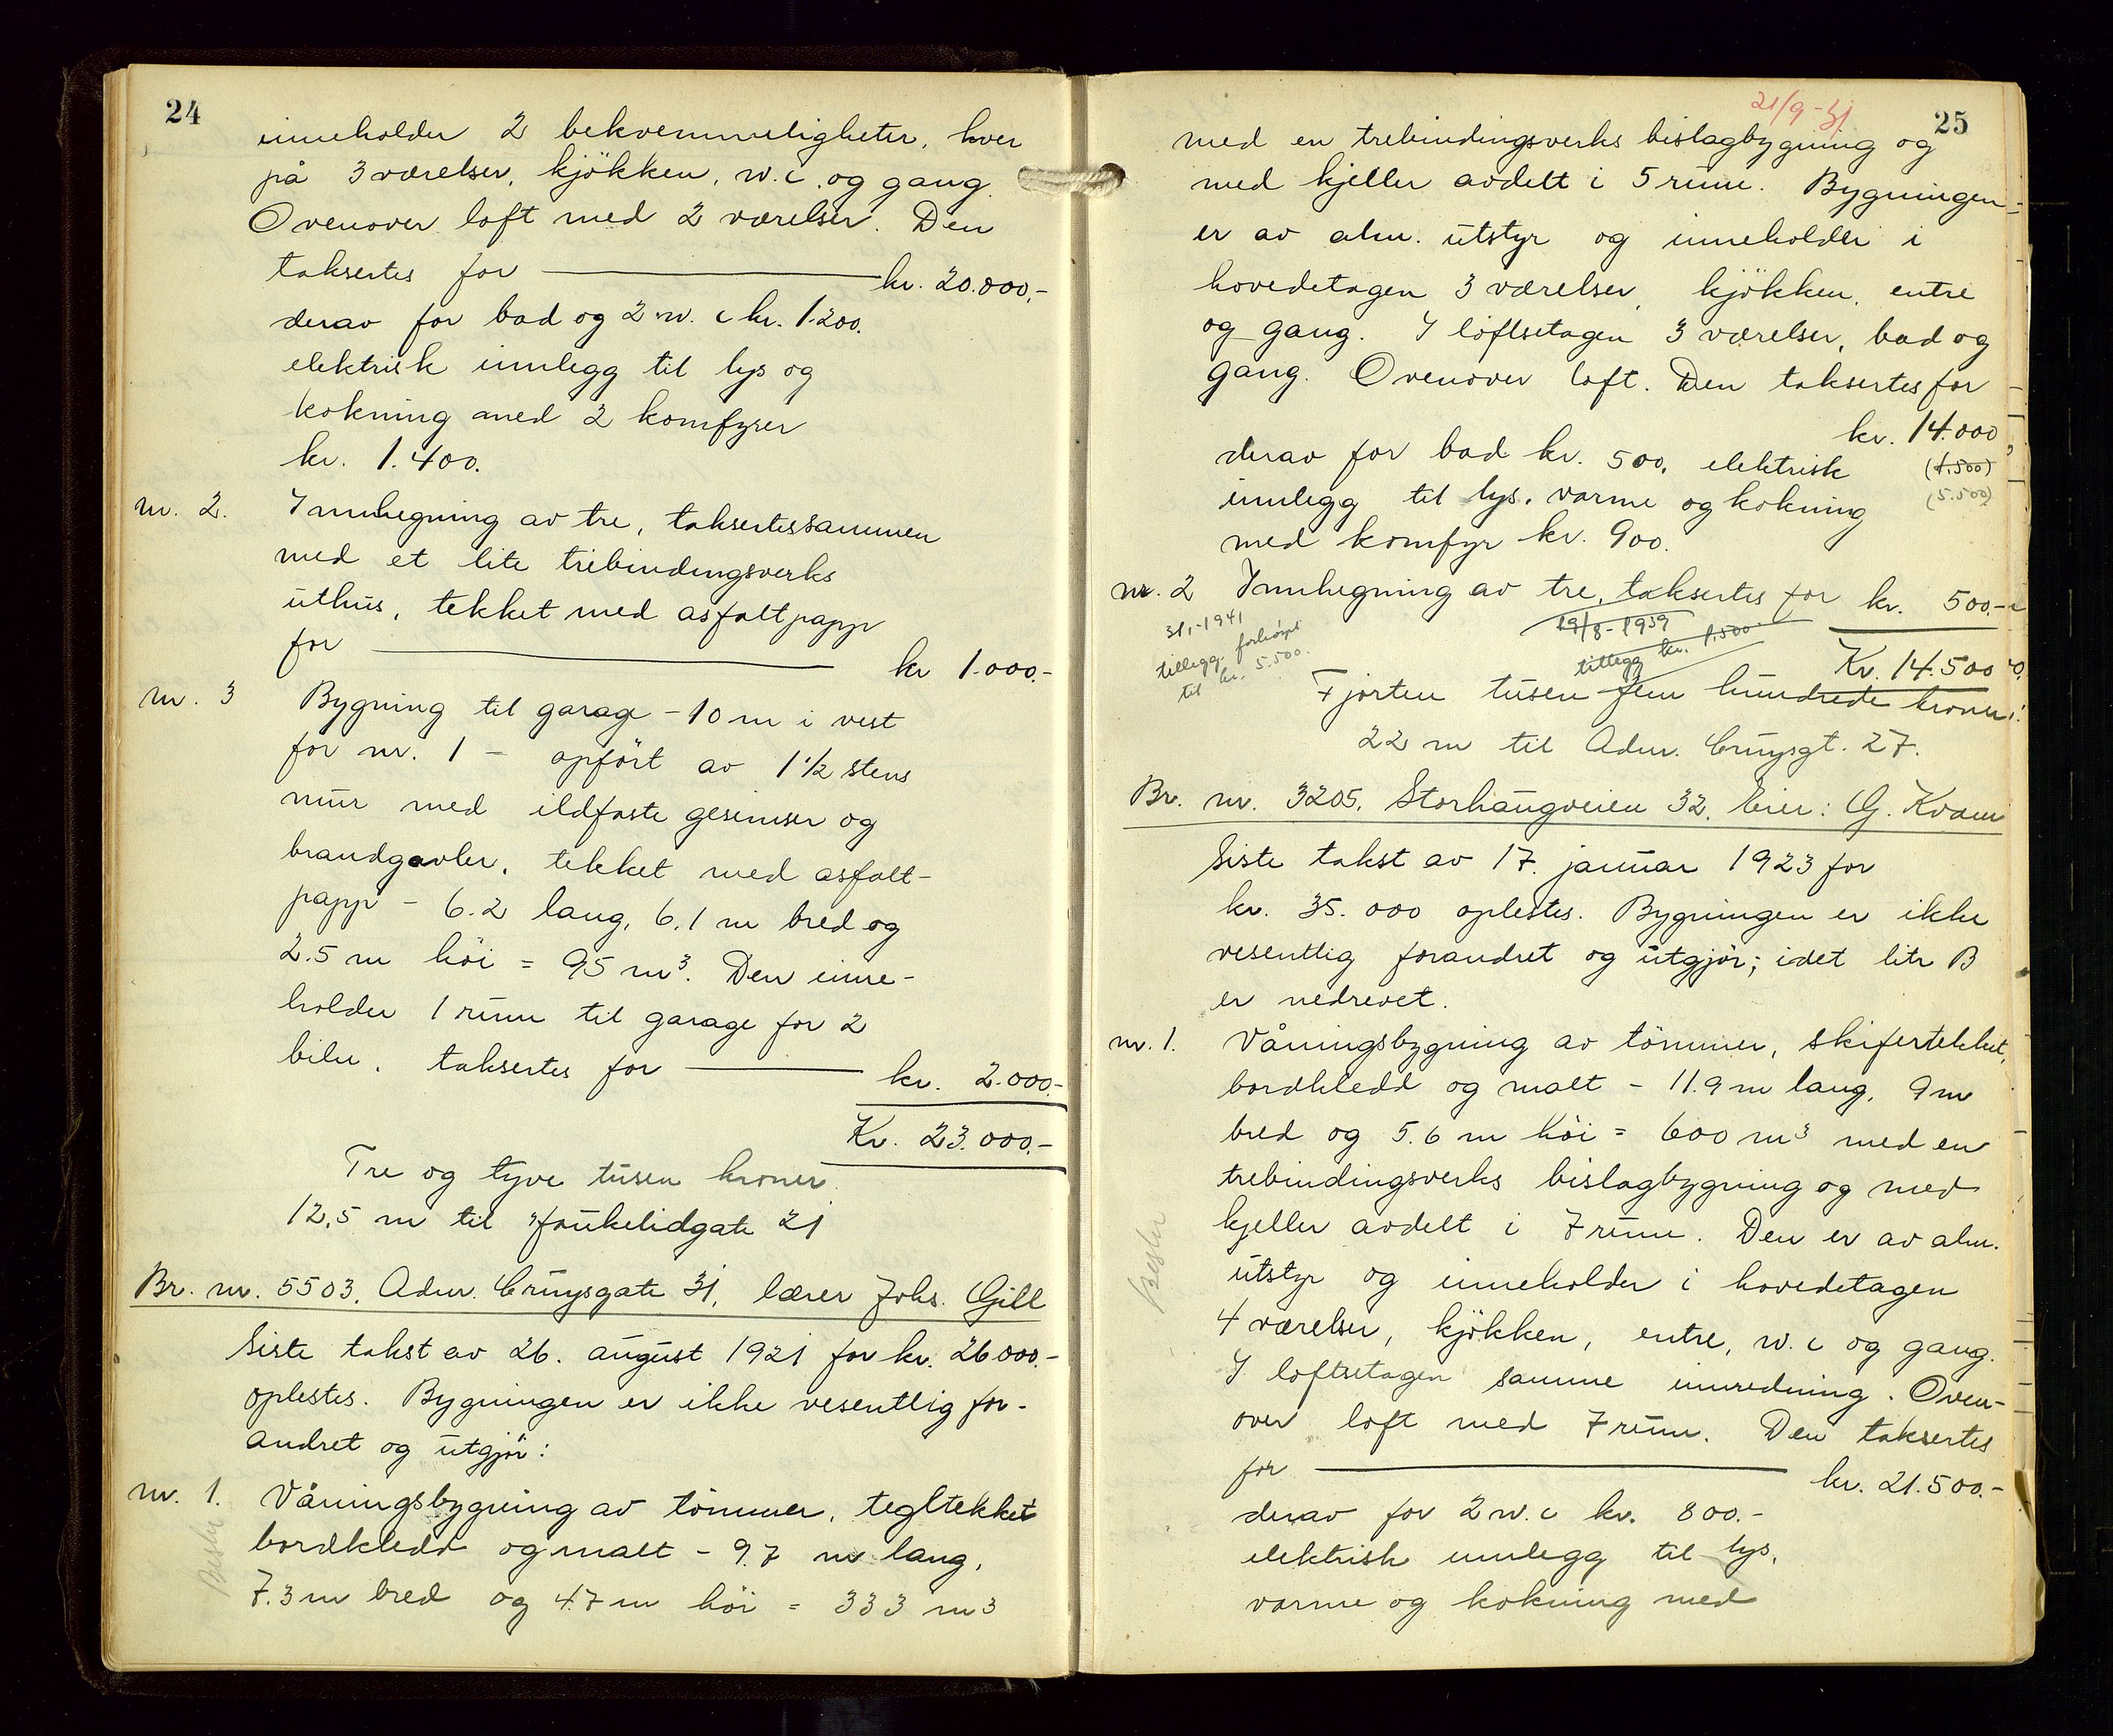 24
inneholder 2 bekvemmeligheter, hver
på 3 værelser, kjökken, w.c. og gang.
Ovenover loft med 2 værelser. Den
taksertes for kr. 20.000,-
derav for bad og 2 w.c kr. 1.200.
elektrisk innlegg til lys og
kokning med 2 komfyrer
kr. 1.400.
nr. 2. Innhegning av tre, taksertes sammen
med et lite trebindingsverks
uthus, tekket med asfaltpapp
for kr 1.000.-
nr. 3 Bygning til garage - 10 m i vest
for nr. 1 - opfört av 1 1/2 stens
mur med ildfaste gesimser og
brandgavler, tekket med asfalt-
papp - 6.2 lang, 6.1 m bred og
2.5 m höi = 95 m³. Den inne-
holder 1 rum til garage for 2
biler, taksertes for kr. 2.000.-
Kr. 23.000.-
Tre og tyve tusen kroner
12,5 m til Haukelidgate 21
Br. nr. 5503, Adm. Cruysgate 31, lærer Johs. Gill
Siste takst av 26. august 1921 for kr. 26.000.-
oplestes. Bygningen er ikke vesentlig for-
andret og utgjör:
nr. 1. Våningsbygning av tömmer, tegltekket
bordkledd og malt - 9.7 m lang,
7.3 m bred og 4.7 m höi = 333 m³
21/9-31
25
med en trebindingsverks bislagbygning og
med kjeller avdelt i 5 rum. Bygningen
er av alm. utstyr og inneholder i
hovedetagen 3 værelser, kjökken, entre
og gang. I loftsetagen 3 værelser, bad og
gang. Ovenover loft. Den taksertes for
kr. 14.000
derav for bad kr. 500, elektrisk (1.500)
innlegg til lys, varme og kokning (5.500)
med komfyr kr. 900.
nr. 2 Innhegning av tre, taksertes for kr. 500.-
31/1-1941 19/8-1939
tillegg. forhöyet tillegg kr. 1.500
til kr. 5.500. Kr. 14.500
Fjorten tusen fem hundrede kroner.
22 m til Adm. Cruysgt. 27.
Br. nr. 3205, Storhaugveien 32, Eier: G. Kvam
Siste takst av 17. januar 1923 for
kr. 35.000 oplestes. Bygningen er ikke
vesentlig forandret og utgjör; idet litr B
er nedrevet.
nr. 1. Våningsbygning av tömmer, skifertekket,
bordkledd og malt - 11.9 m lang, 9 m
bred og 5.6 m höi = 600 m³ med en
trebindingsverks bislagbygning og med
kjeller avdelt i 7 rum. Den er av alm.
utstyr og inneholder i hovedetagen
4 værelser, kjökken, entre, w.c og gang.
I loftsetagen samme innredning. Oven-
over loft med 7 rum. Den taksertes
for kr. 21.500.-
derav for 2 w.c kr. 800.-
elektrisk innlegg til lys,
varme og kokning med